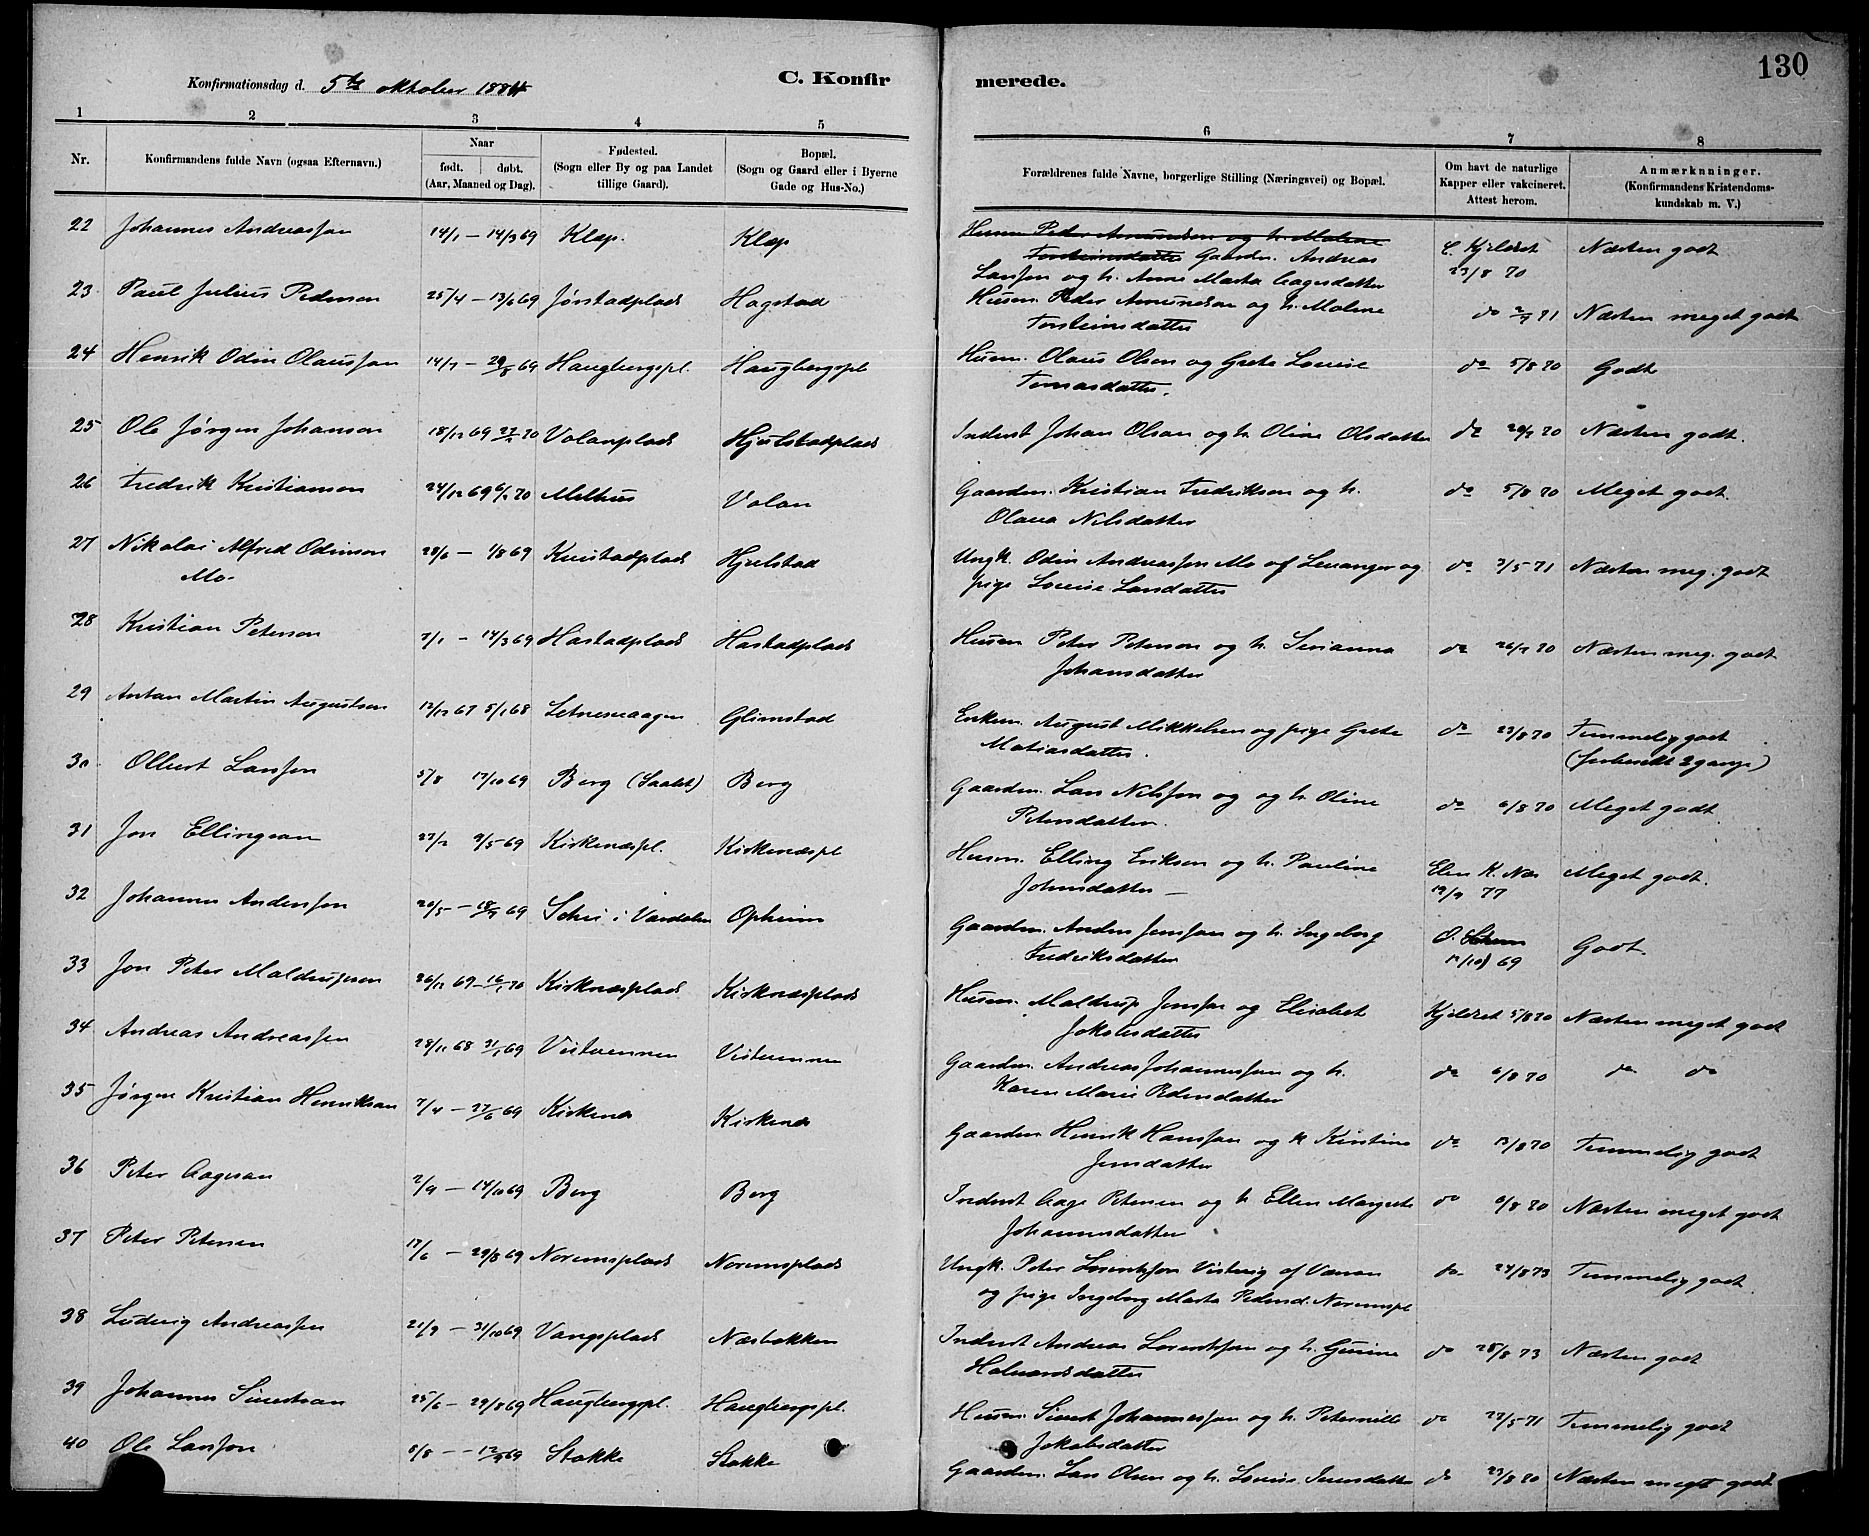 130
Konfirmationsdag d. 5te oktober 1884
C. Konfirmerede.
1 2 3 4 5 6 7 8
Nr.
Konfirmandens fulde Navn (ogsaa Efternavn.)
Naar
født. døbt.
(Aar, Maaned og Dag).
Fødested.
(Sogn eller By og paa Landet
tillige Gaard).
Bopæl.
(Sogn og Gaard eller i Byerne
Gade og Hus-No.)
Forældrenes fulde Navne, borgerlige Stilling (Næringsvei) og Bopæl.
Om havt de naturlige
Kapper eller vakcineret.
Attest herom.
Anmærknninger.
(Konfirmandens Kristendoms-
kundskab m. V.)
22 Johannes Andreassen 14/1 — 14/3 69 Klæp. Klæp Husm Peder Amundsen og h. Malene
Torsteinsdatter Gaardm. Andreas
Larssen og h. Anne Marta Aagesdatter
Kjeldset 23/8 70 Næsten godt
23 Paul Julius Pedersen 25/4 — 13/6 69 Jørstadplads Hagstad Husm. Peder Amundsen og h. Malene
Torsteinsdatter do 71 Næsten meget godt
24 Henrik Odin Olaussen 14/7 — 69 Haugbergspl. Haugbergspl Husm. Olaus Olsen og Grete Lovise
Tomasdatter. do 5/8 70 Godt
25 Ole Jørgen Johansen 18/12 69 70 Volanplads Hjelstadplads Inderst Johan Olsen og h. Oline Olsdatter do 70 Næsten godt.
26 Fredrik Kristiansen 24/12 69 70 Melhus Volan Gaardm. Kristian Fredriksen og h.
Olava Nilsdatter do 5/8 70 Meget godt.
27 Nikolai Alfred Odinsen
Mo. 28/6 — 1/8 69 Hjelstad Ungk. Odin Andreassen Mo af Levanger og
pige Lovise Larsdatter do 71 Næsten meg. godt
28 Kristian Petersen 7/1 — 14/3 69 Hastadplads Hastadplads Husm Peter Petersen og h.
Johansdatter do 70 Næsten meg. godt
29 Anton Martin Augustsen 12/12 67 5/1 68 Glimstad Enkem. August Mikkelsen og pige Grete
Matiasdatter. do 23/8 70 Temmelig godt
(forberedt 2 gange)
30 Olbert Larssen 5/8 17/10 69 Berg Berg Gaardm. Lars Nilssen og og h. Oline
Petersdatter. do 6/8 70 Meget godt
31 Jon Ellingsen 27/2 9/5 69 Kirkenæspl. Kirkenæspl Husm. Elling Eriksen og h. Pauline
Johnsdatter — Elen K. Næs
77 Meget godt.
32 Johannes Anderssen 20/5 — 69 i Værdalen Opheim Gaardm. Anders Jenssen og h. Ingeborg
Fredriksdatter 69 Godt.
33 Jon Peter Maldrupsen 26/12 69 — 70 Kirknæsplads Kirknæsplads Husm. Maldrup Jonssen og Elisabet
Jakobsdatter Kjeldset 5/8 70 Næsten meget godt
34 Andreas Andreassen 28/11 68 69 Vistvennen Vistvennen Gaardm. Andreas Johannessen og h.
Karen Marie Pedersdatter do 6/8 70 do do
35 Jørgen Kristian Henriksen 7/4 — 27/6 69 Kirkenæs Kirkenæs Gaardm Henrik Hanssen og h Kirstine
Jensdatter do 13/8 70 Temmelig godt
36 Peter Aagesen 2/9 — 14/10 69 Berg Berg Inderst Aage Petersen og h Ellen Margrete
Johannesdatter do 6/8 70 Næsten meget godt
37 Peter Petersen 17/6 — 29/8 69 Noremsplads Noremsplads Ungk. Peter Lorentssen Vistvig af Væran
og pige Ingeborg Marta Pedersd. Noremspl do 24/8 73 Temmelig godt
38 Ludvig Andreassen 21/9 — 31/10 69 Vangsplads Næsbakken Inderst Andreas Lorentssen og h. Gurine
Halvardsdatter do 28/8 73 Næsten godt
39 Johannes Sivertsen 25/6 — 29/8 69 Haugbergspl. Haugbergspl. Husm. Sivert Johannessen og h. Peternille
Jakobsdatter do 71 Temmelig godt
40 Ole Larssen 8/8 — 12/9 69 Stokke Stokke Gaardm. Lars Olsen og h. Lovise Iversdatter do 23/8 70 Næsten meget godt